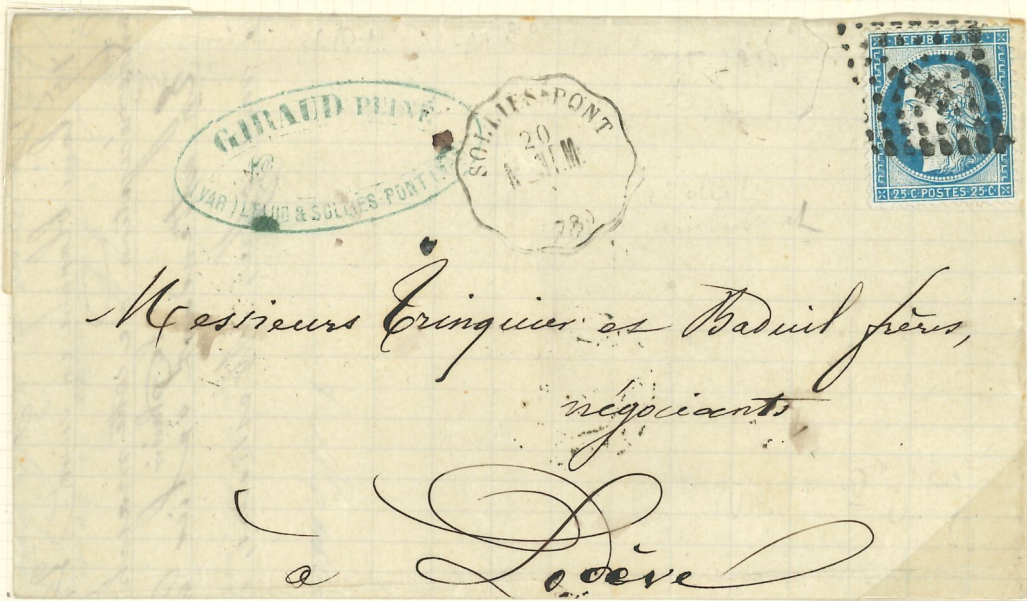 GIRAUD PUINÉ
(VAR) LE LUC & SOLLIÈS-PONT (VAR)
SOLLIES-PONT
20
N. NIM.
78
REPUB. FRANC.
25·C·POSTES·25·C
Messieurs Trinquier et Baduil frères,
négociants
à Lodève